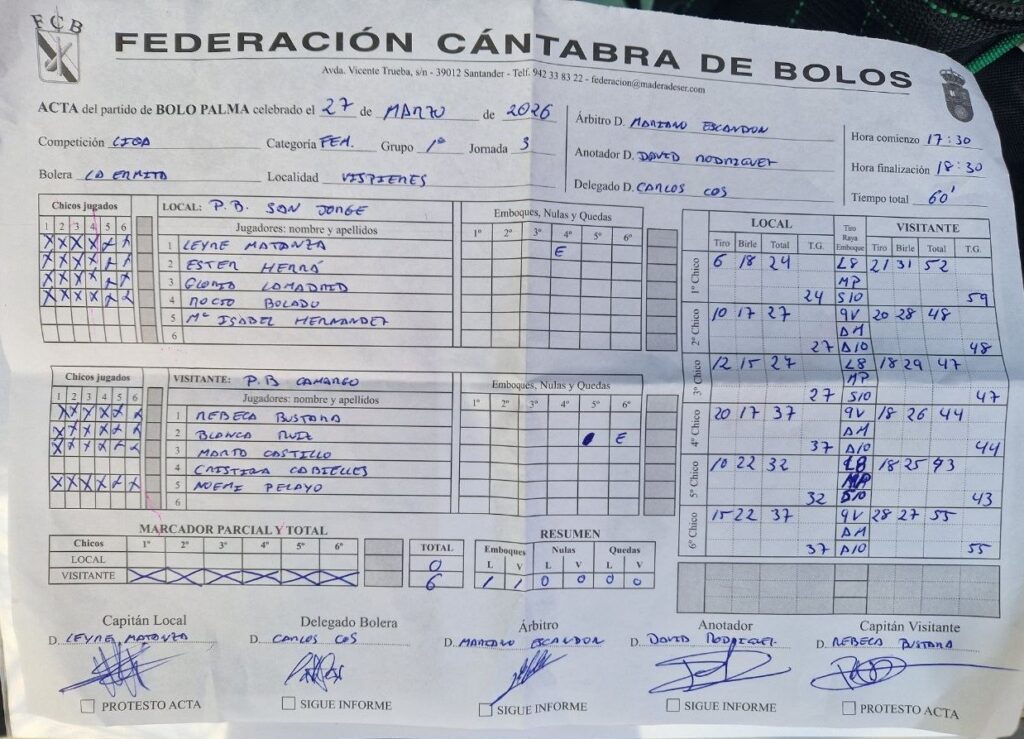 FCB
FEDERACIÓN CÁNTABRA DE BOLOS
Avda. Vicente Trueba, s/n - 39012 Santander - Telf. 942 33 83 22 - federacion@maderadeser.com
ACTA del partido de BOLO PALMA celebrado el 27 de MARZO de 2026
Competición LIGA Categoría FEM. Grupo 1ª Jornada 3
Bolera LA ERMITA Localidad VISPIERES
Árbitro D. MARIANO ESCANDON
Anotador D. DAVID RODRIGUEZ
Delegado D. CARLOS COS
Hora comienzo 17:30
Hora finalización 18:30
Tiempo total 60'
Chicos jugados
1 2 3 4 5 6
X X X X X X
X X X X X X
X X X X X X
X X X X X X
LOCAL: P.B. SAN JORGE
Jugadores: nombre y apellidos
1 LEYRE MATANZA
2 ESTER HERRÁ
3 GLORIA LAMADRID
4 ROCIO BOLADO
5 Mª ISABEL HERNANDEZ
6
Emboques, Nulas y Quedas
1º 2º 3º 4º 5º 6º
E
Chicos jugados
1 2 3 4 5 6
X X X X X X
X X X X X X
X X X X X X
X X X X X X
VISITANTE: P.B CAMARGO
Jugadores: nombre y apellidos
1 REBECA BUSTARA
2 BLANCA RUIZ
3 MARTA CASTILLO
4 CRISTINA CABIELLES
5 NOEMI PELAYO
6
Emboques, Nulas y Quedas
1º 2º 3º 4º 5º 6º
E
LOCAL Tiro Raya Emboque VISITANTE
Tiro Birle Total T.G. Tiro Birle Total T.G.
1º Chico 6 18 24 L8 21 31 52
MP
24 S10 59
2º Chico 10 17 27 9V 20 28 48
AM
27 A10 48
3º Chico 12 15 27 L8 18 29 47
MP
27 S10 47
4º Chico 20 17 37 9V 18 26 44
AM
37 A10 44
5º Chico 10 22 32 L8 18 25 43
MP
32 43
6º Chico 15 22 37 9V 28 27 55
AM
37 A10 55
MARCADOR PARCIAL Y TOTAL
Chicos 1º 2º 3º 4º 5º 6º TOTAL
LOCAL 0
VISITANTE X X X X X X 6
RESUMEN
Emboques Nulas Quedas
L V L V L V
1 1 0 0 0 0
Capitán Local
D. LEYRE MATANZA
PROTESTO ACTA
Delegado Bolera
D. CARLOS COS
SIGUE INFORME
Árbitro
D. MARIANO ESCANDON
SIGUE INFORME
Anotador
D. DAVID RODRIGUEZ.
SIGUE INFORME
Capitán Visitante
D. REBECA BUSTARA
PROTESTO ACTA